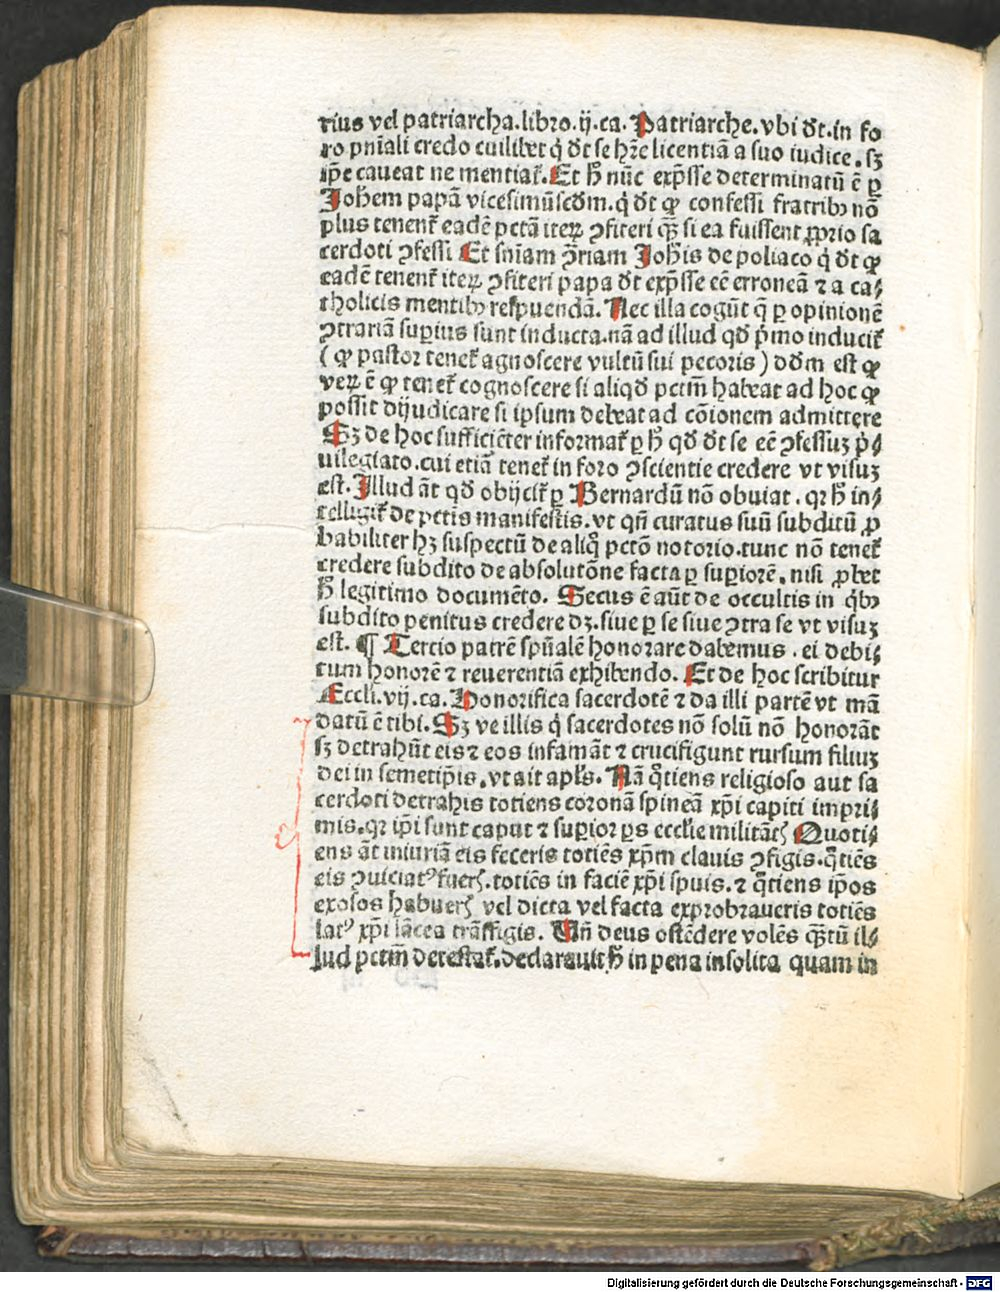 rius vel patriarcha.libro.ij.ca. Patriarche.vbi dr̄t.in fo
ro pnīali credo cuilibet q̇ dt se hr̄e licentiā a suo iudice.sꝫ
ip̄e caueat ne mentiat̄. Et h̄ nūc exp̄sse determinatū ē ꝑ
Joh̄em papā vicesimūscdm. q̇ dt ꝙ confessi fratribꝰ nō
plus tenent̄ eadē pctā iteꝝ ꝯfiteri qꝫ̄ si ea fuissent ꝓprio sa
cerdoti ꝯfessi Et sn̄iam ꝯ̄riam Joh̄is de poliaco q̇ dt ꝙ
eadē tenent̄ iteꝝ ꝯfiteri papa dt exp̄sse eē erroneā ⁊ a ca⸗
tholicis mentibꝰ respuendā. Nec illa cogūt q̄ ꝑ opinionē
ꝯtrariā suꝑius sunt inducta.nā ad illud qd̄ p̄mo inducit̄
( ꝙ pastor tenet̄ agnoscere vultū sui pecoris ) dd̄m est ꝙ
veꝝ ē ꝙ tenet̄ cognoscere si aliqd̄ pctm̄ habeat ad hoc ꝙ
possit dijudicare si ipsum debeat ad cōionem admittere
Sꝫ de hoc sufficiēter informat̄ ꝑ h̄ qd̄ dt se eē ꝯfessuꝫ p̄⸗
uilegiato.cui etiā tenet̄ in foro ꝯscientie credere vt visuꝫ
est. Illud āt qd̄ obijcit̄ ꝑ Bernardū nō obuiat . qꝛ h̄ in⸗
telligit̄ de pctis manifestis.vt qn̄ curatus suū subditū ꝓ
babiliter hꝫ suspectū de aliq̇ pctō notorio.tunc nō tenet̄
credere subdito de absolutōne facta ꝑ suꝑiorē. nisi ꝓbet
h̄ legitimo documēto. Secus ē aūt de occultis in q̇bꝰ
subdito penitus credere dꝫ.siue ꝑ se siue ꝯtra se vt visuꝫ
est. ¶ Tercio patrē spūalē honorare debemus . ei debi⸗
tum honorē ⁊ reuerentiā exhibendo. Et de hoc scribitur
Eccli.vij.ca. Honorifica sacerdotē ⁊ da illi partē vt mā
datū ē tibi. Sꝫ ve illis q̇ sacerdotes nō solū nō honorāt
sꝫ detrahūt eis ⁊ eos infamāt ⁊ crucifigunt rursum filiuꝫ
dei in semetip̄is.vt ait apls̄. Nā q̊tiens religioso aut sa
cerdoti detrahis totiens coronā spineā xp̄i capiti impri⸗
mis.qꝛ ip̄i sunt caput ⁊ suꝑior ꝑs ecclie militātꝭ Quoti⸗
ens āt iniuriā eis feceris totiēs xp̄m clauis ꝯfigis.q̊tiēs
eis ꝯuiciatꝰ fuerꝭ.totiēs in faciē xp̄i spuis.⁊ q̊tiens ip̄os
exosos habuerꝭ vel dicta vel facta exprobraueris totiēs
latꝰ xp̄i lācea trāsfigis. Vn̄ deus ostēdere volēs qꝫ̄tū il⸗
lud pctm̄ detestat̄.declarauit h̄ in pena insolita quam in
Digitalisierung gefördert durch die Deutsche Forschungsgemeinschaft - DFG